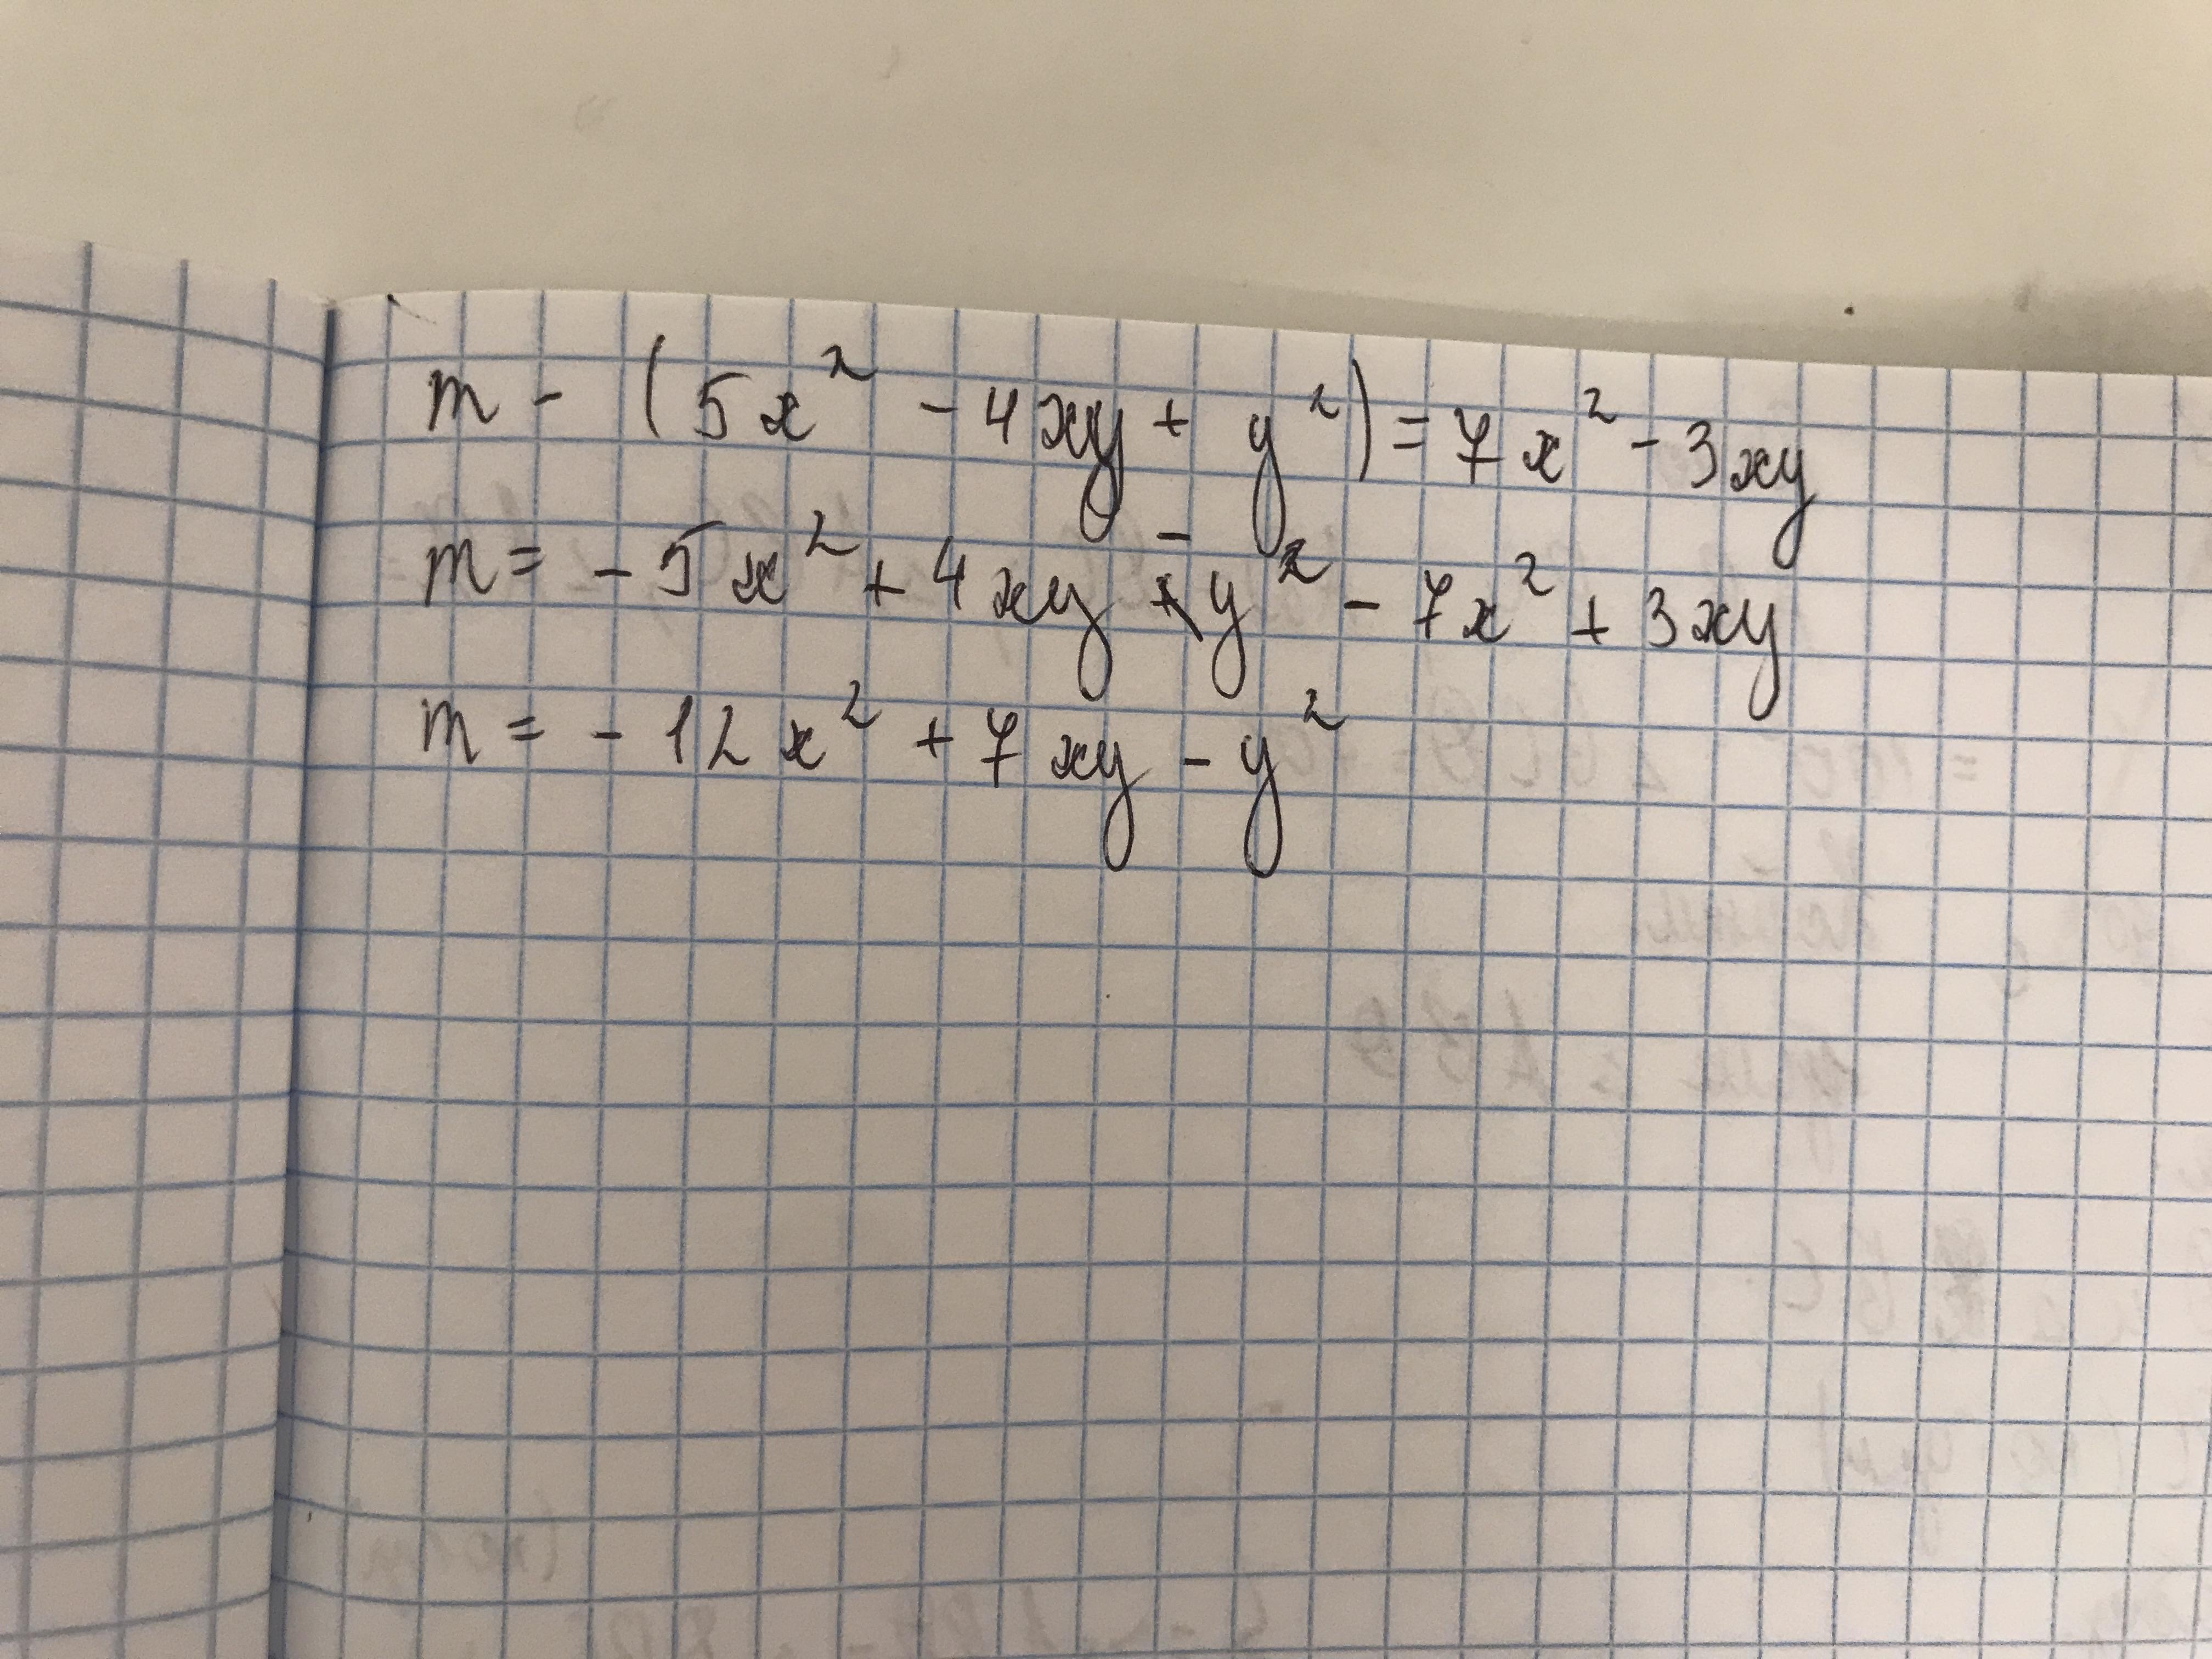 m - (5x² - 4xy + y²) = 7x² - 3xy
m = - 5x² + 4xy - y² - 7x² + 3xy
m = - 12x² + 7xy - y²